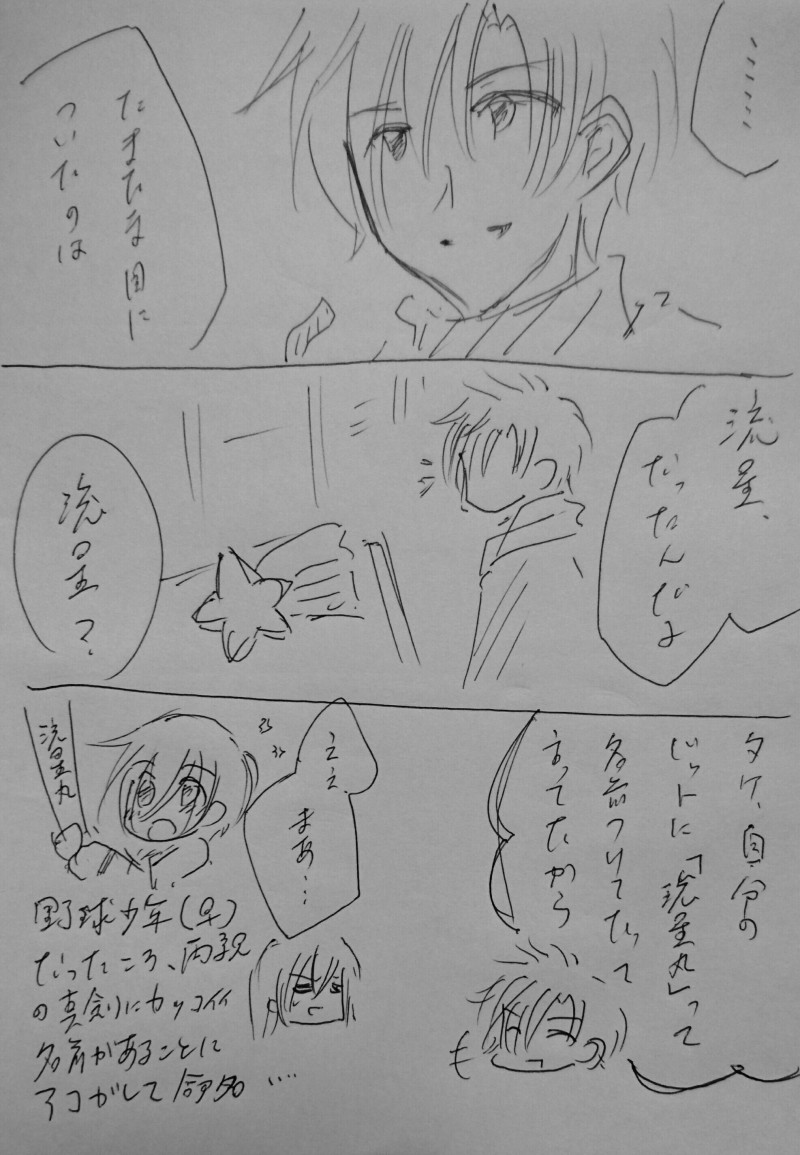 ………
たまたま目に
ついたのは
流星、
だったんだよ
流星？
タケ、自分の
バットに「流星丸」って
名前つけてたって
言ってたから
ええ
まあ…
流星丸
野球少年(早)
だったころ、両親
の真剣にカッコイイ
名前があることに
アコがして命名…